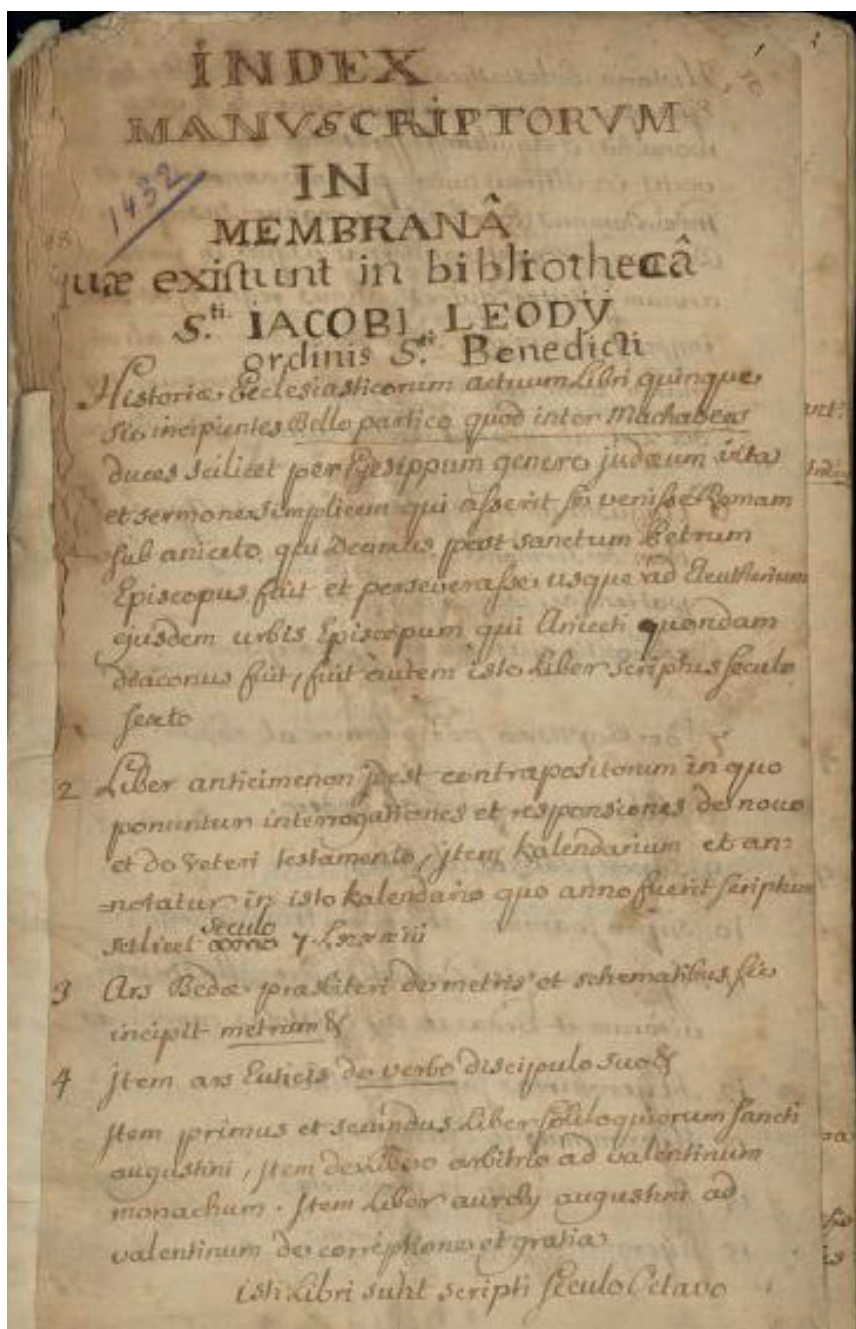 INDEX
MANVSCRIPTORVM
IN
1432
MEMBRANÂ
quæ existunt in bibliothecâ
S.ti IACOBI LEODY
ordinis S.ti Benedicti
Historiæ Ecclesiasticorum actuum Libri quinque
sic incipientes Bello partico quod inter Machabeos
duces scilicet per Egesippum genere judæum vita
et sermone simplicem qui asserit se venisse Romam
sub aniceto qui Decimus post sanctum Petrum
Episcopus fuit et perseverasse usque ad Eleutherium
ejusdem urbis Episcopum qui Aniceti quondam
diaconus fuit, fuit autem iste Liber scriptus seculo
sexto
2 Liber anticimenon id est contrapositorum in quo
ponuntur interrogationes et responsiones de novo
et de veteri testamento, jtem kalendarium et an-
=notatur in isto kalendario quo anno fuerit scriptum
scilicet seculo 7. Lxxxiii
3 Ars Bedæ præsbiteri de metris et schematibus sic
incipit metrum &
4 jtem ars Euticis de verbo discipulo suo &
jtem primus et secundus Liber soliloquiorum sancti
augustini, jtem de Libero arbitrio ad valentinum
monachum. jtem Liber aurely augustini ad
valentinum de correptione et gratia
isti Libri sunt scripti seculo Octavo